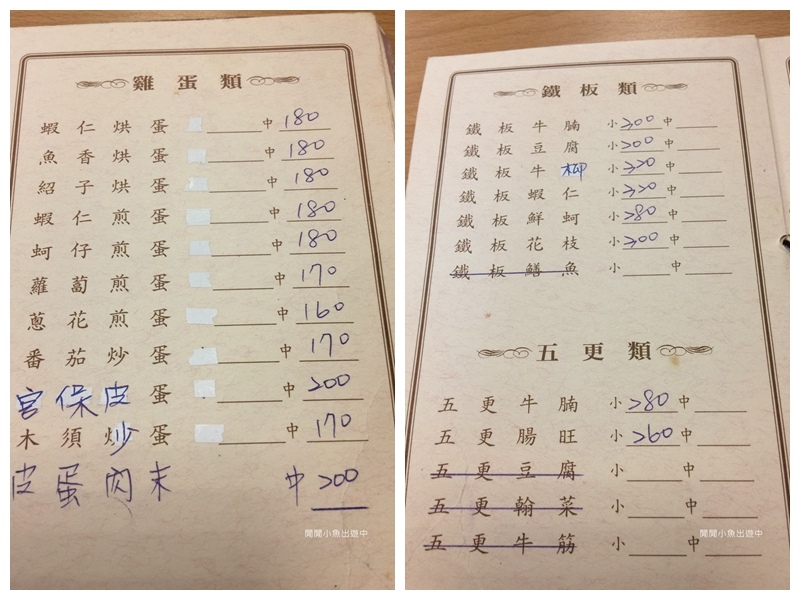 雞蛋類
蝦仁烘蛋 中 180
魚香烘蛋 中 180
紹子烘蛋 中 180
蝦仁煎蛋 中 180
蚵仔煎蛋 中 180
蘿蔔煎蛋 中 170
蔥花煎蛋 中 160
番茄炒蛋 中 170
宮保皮蛋 中 200
木須炒蛋 中 170
皮蛋肉末 中 200
閒閒小魚出遊中
鐵板類
鐵板牛腩 小 300 中
鐵板豆腐 小 200 中
鐵板牛柳 小 220 中
鐵板蝦仁 小 220 中
鐵板鮮蚵 小 280 中
鐵板花枝 小 200 中
鐵板鱔魚 小 中
五更類
五更牛腩 小 280 中
五更腸旺 小 260 中
五更豆腐 小 中
五更翰菜 小 中
五更牛筋 小 中
閒閒小魚出遊中